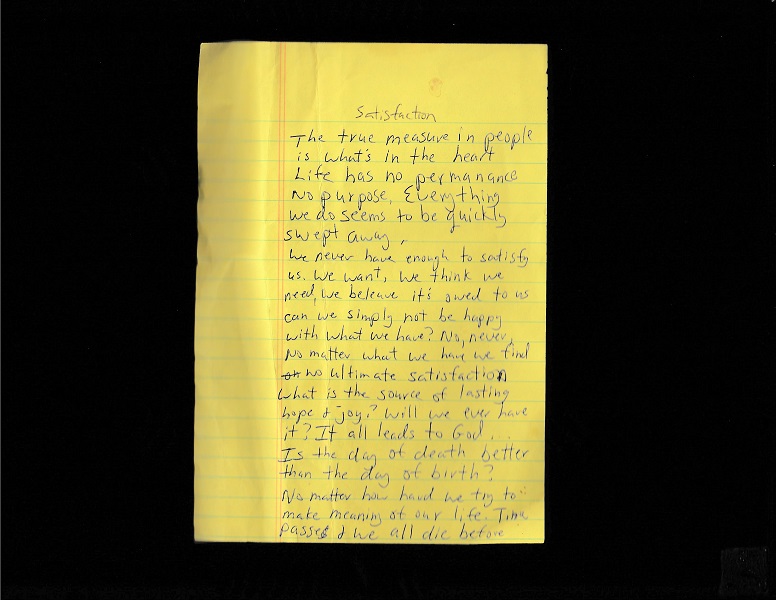 Satisfaction
The true measure in people
is what's in the heart
Life has no permanance
No purpose, Everything
we do seems to be quickly
swept away,
We never have enough to satisfy
us. We want, We think we
need, we beleave it's owed to us
can we simply not be happy
with what we have? No, never,
No matter what we have we find
no ultimate satisfaction
what is the source of lasting
hope & joy? Will we ever have
it? It all leads to God...
Is the day of death better
than the day of birth?
No matter how hard we try to
make meaning of our life. Time
passes & we all die before